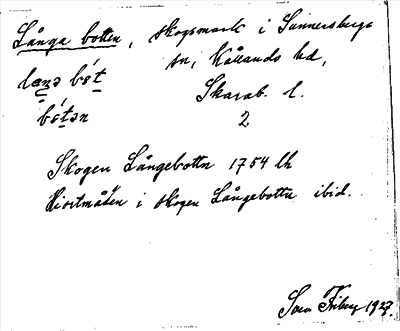 Långa botten, skogsmark i Sunnersbergs
sn, Kållands hd,
Skarab. l.
2
Skogen Långebottn 1754 lh
Hiortmåsen i skogen Långebottn ibid.
Sven Friberg 1927.